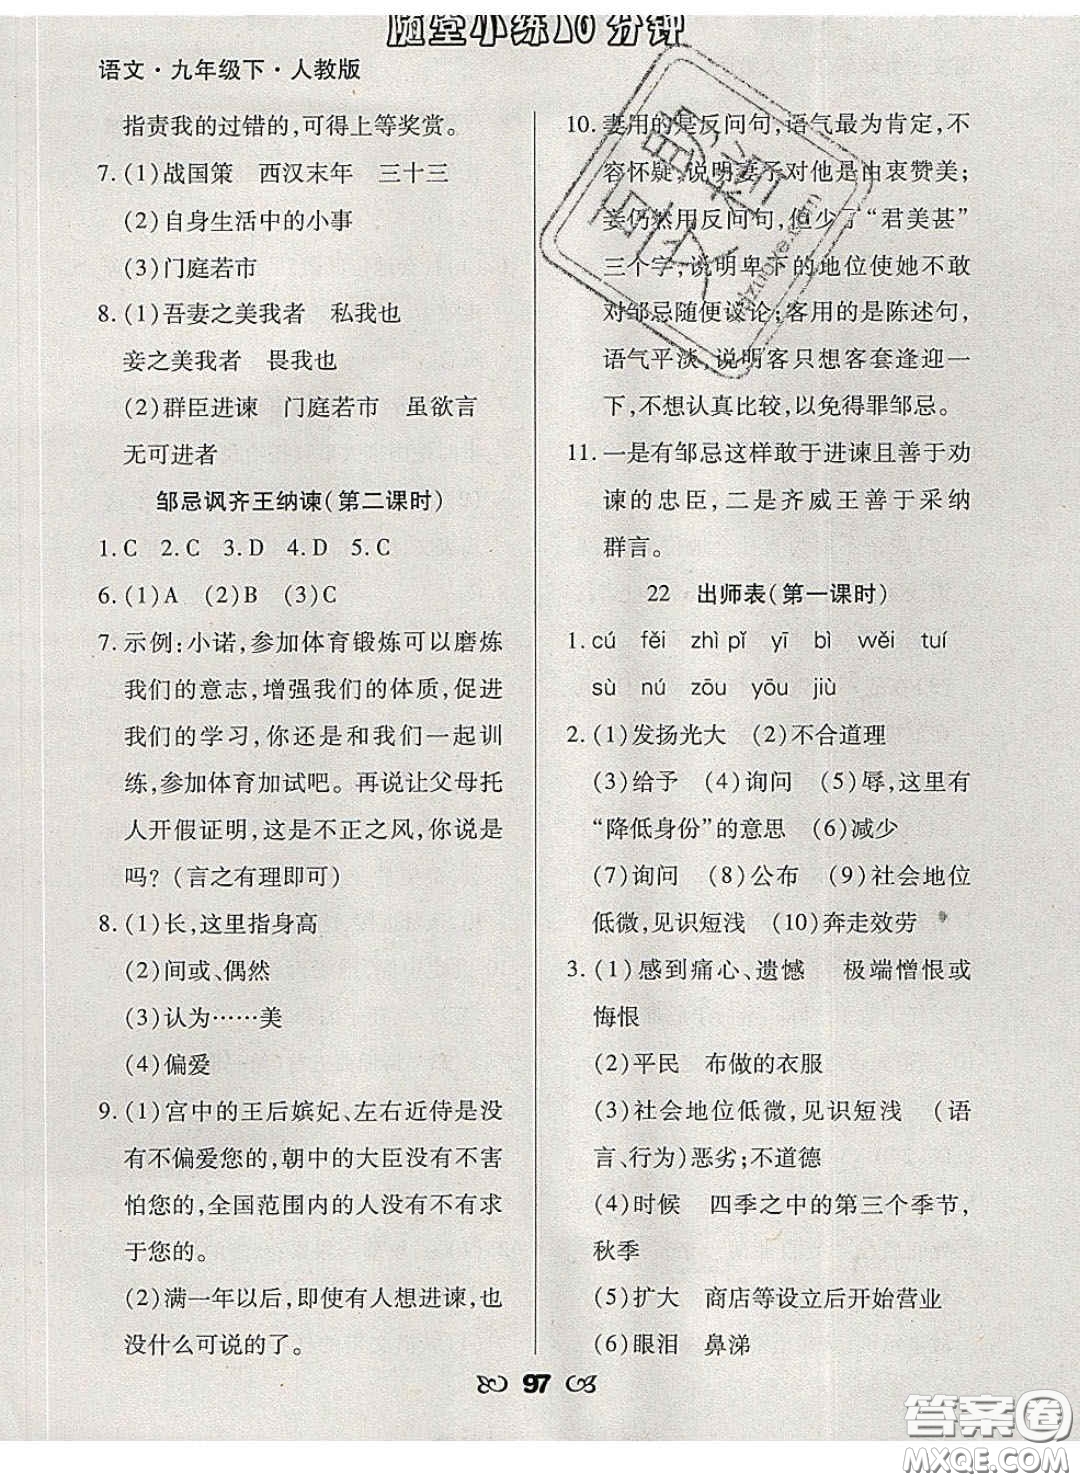 随堂小练10分钟
语文·九年级下·人教版
指责我的过错的,可得上等奖赏。
7.(1)战国策 西汉末年 三十三
(2)自身生活中的小事
(3)门庭若市
8.(1)吾妻之美我者 私我也
妾之美我者 畏我也
(2)群臣进谏 门庭若市 虽欲言
无可进者
邹忌讽齐王纳谏(第二课时)
1.C 2.C 3.D 4.D 5.C
6.(1)A (2)B (3)C
7.示例:小诺,参加体育锻炼可以磨炼
我们的意志,增强我们的体质,促进
我们的学习,你还是和我们一起训
练,参加体育加试吧。再说让父母托
人开假证明,这是不正之风,你说是
吗?(言之有理即可)
8.(1)长,这里指身高
(2)间或、偶然
(3)认为……美
(4)偏爱
9.(1)宫中的王后嫔妃、左右近侍是没
有不偏爱您的,朝中的大臣没有不害
怕您的,全国范围内的人没有不有求
于您的。
(2)满一年以后,即使有人想进谏,也
没什么可说的了。
10.妻用的是反问句,语气最为肯定,不
容怀疑,说明妻子对他是由衷赞美;
妾仍然用反问句,但少了“君美甚”
三个字,说明卑下的地位使她不敢
对邹忌随便议论;客用的是陈述句,
语气平淡,说明客只想客套逢迎一
下,不想认真比较,以免得罪邹忌。
11.一是有邹忌这样敢于进谏且善于劝
谏的忠臣,二是齐威王善于采纳
群言。
22 出师表(第一课时)
1.cú fěi zhì pǐ yī bì wěi tuí
sù nú zōu yōu jiù
2.(1)发扬光大 (2)不合道理
(3)给予 (4)询问 (5)辱,这里有
“降低身份”的意思 (6)减少
(7)询问 (8)公布 (9)社会地位
低微,见识短浅 (10)奔走效劳
3.(1)感到痛心、遗憾 极端憎恨或
悔恨
(2)平民 布做的衣服
(3)社会地位低微,见识短浅 (语
言、行为)恶劣;不道德
(4)时候 四季之中的第三个季节,
秋季
(5)扩大 商店等设立后开始营业
(6)眼泪 鼻涕
97
答案圈
MXQE.COM